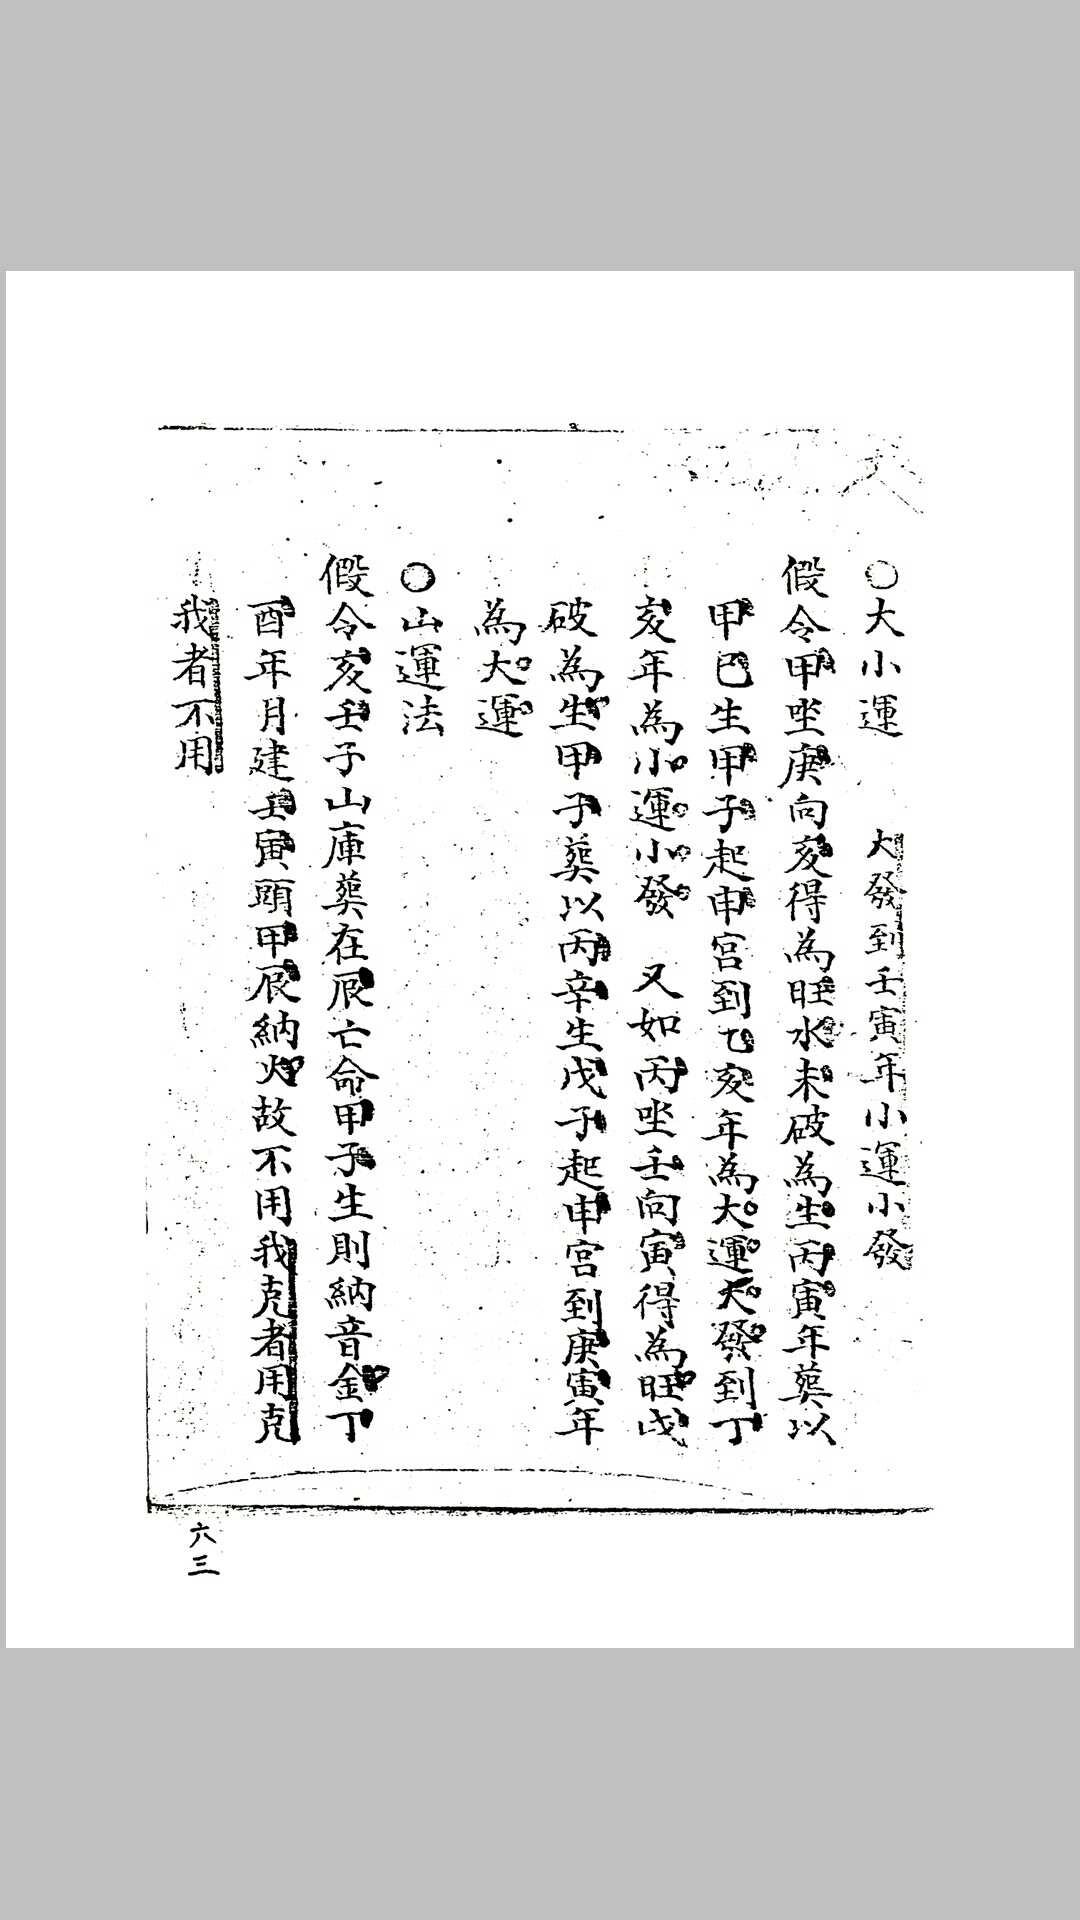 ○大小運 大發到壬寅年小運小發
假令甲坐庚向亥得為旺水未破為生丙寅年葬以
甲巳生甲子起申宮到乙亥年為大運大發到丁
亥年為小運小發 又如丙坐壬向寅得為旺戌
破為生甲子葬以丙辛生戊子起申宮到庚寅年
為大運
○山運法
假令亥壬子山庫葬在辰亡命甲子生則納音金丁
酉年月建壬寅頭甲辰納火故不用我克者用克
我者不用
六三